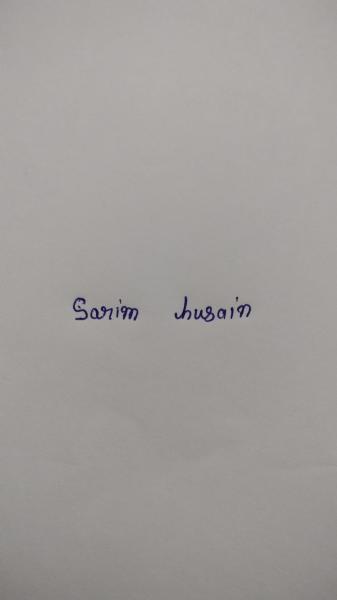 Sarim husain